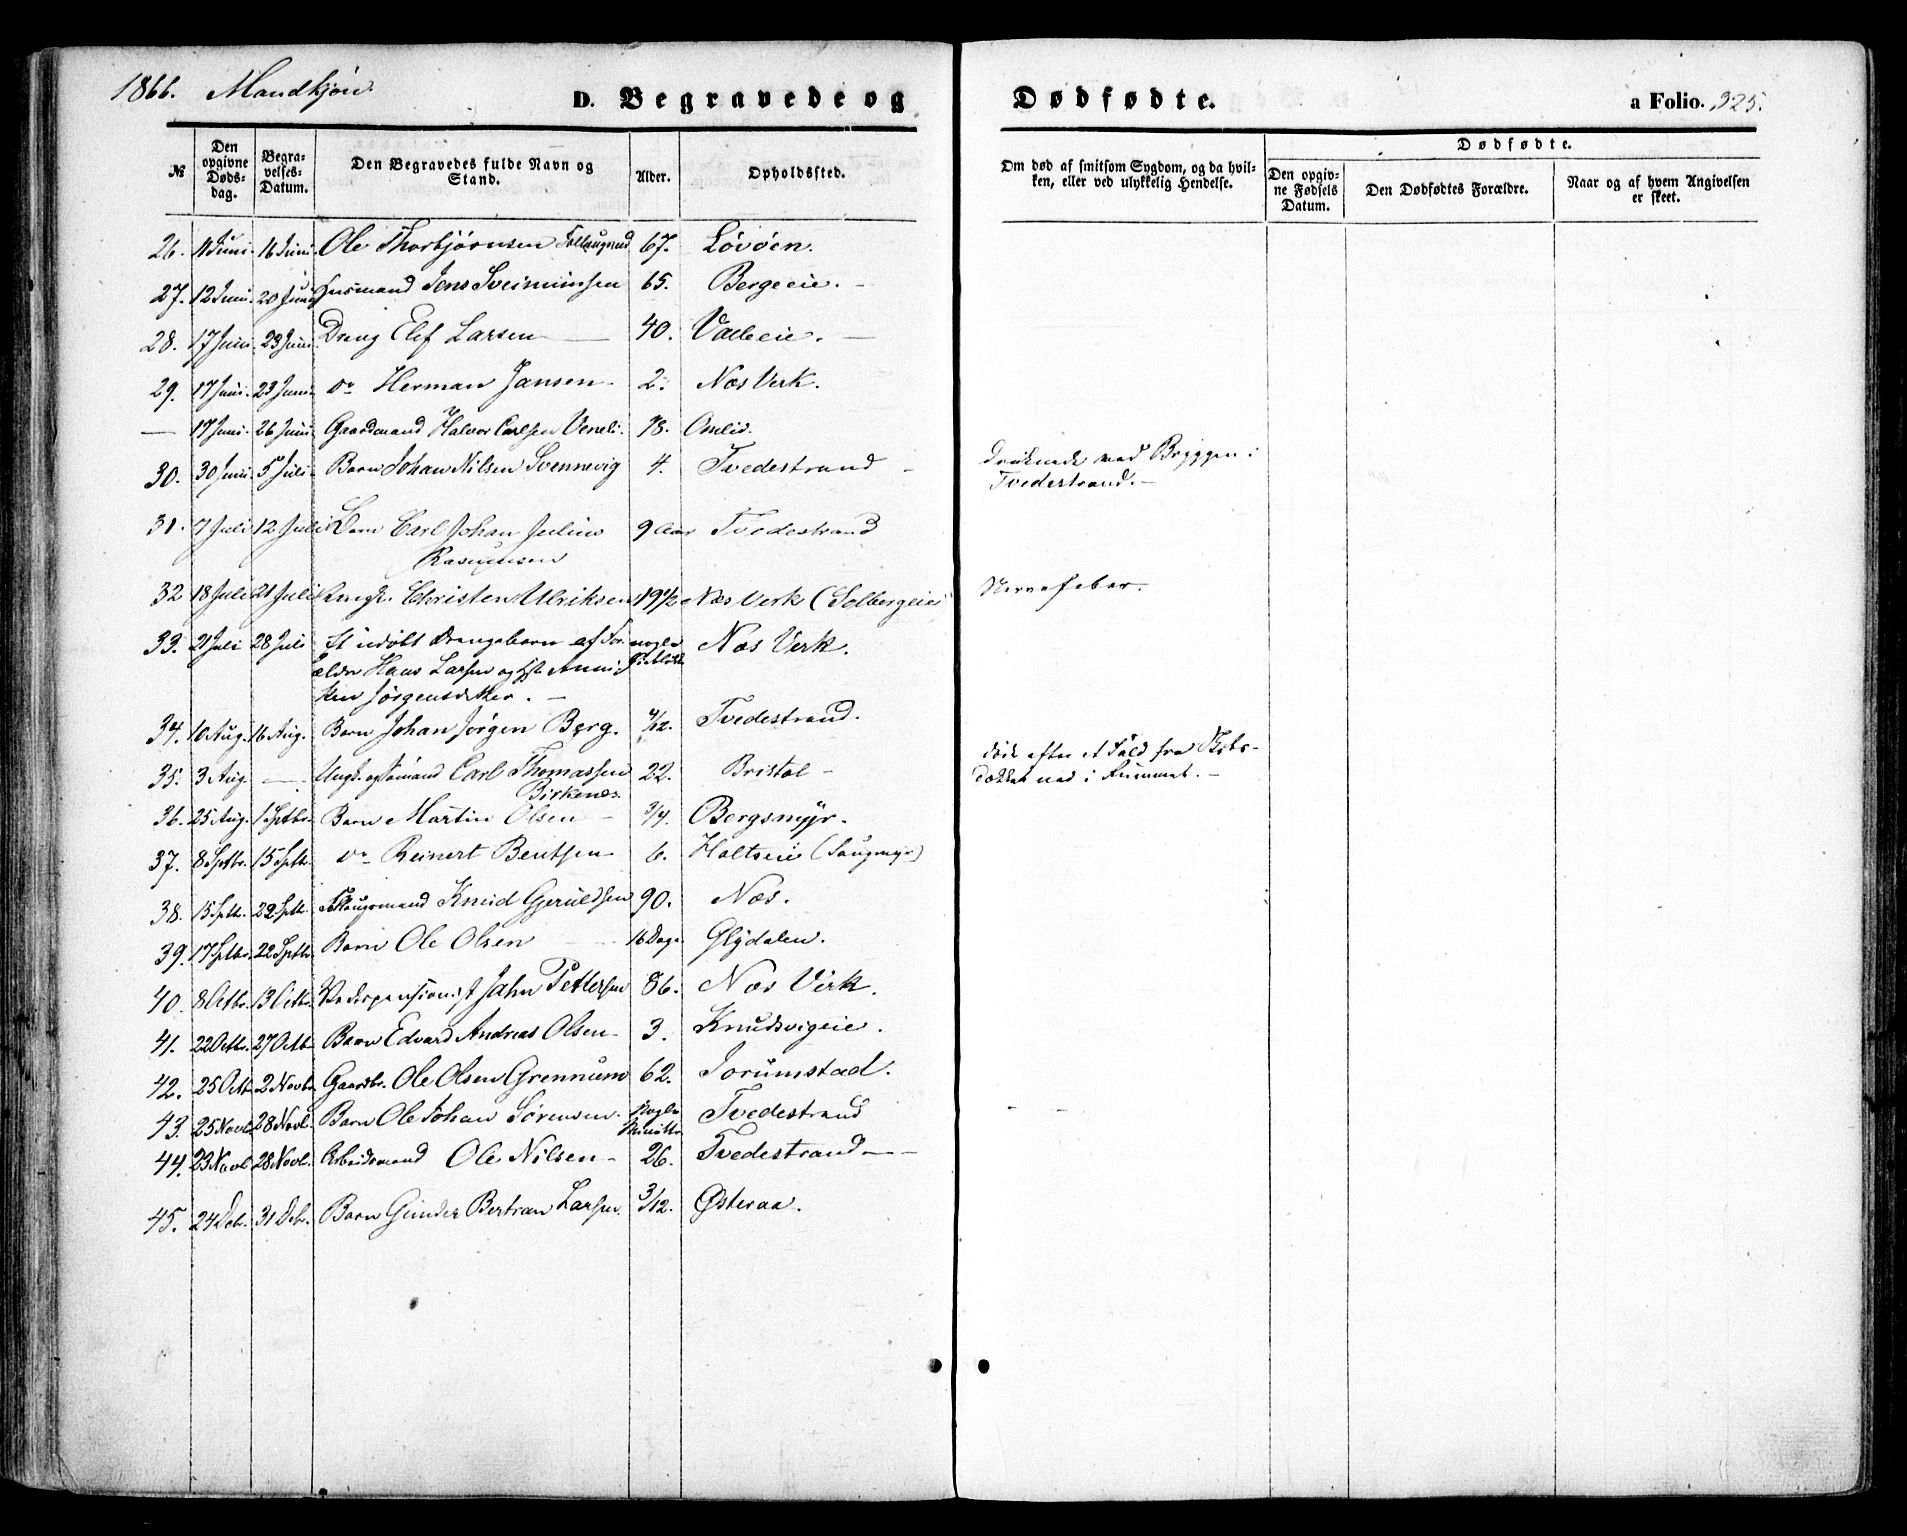 1866. Mandkjøn.
D. Begravede og
Dødfødte.
a Folio. 325.
№
Den opgivne Døds-dag.
Begra-velses-Datum.
Den Begravedes fulde Navn og Stand.
Alder.
Opholdssted.
Om død af smitsom Sygdom, og da hvil-ken, eller ved ulykkelig Hendelse.
Dødfødte.
Den opgiv-ne Fødsels Datum.
Den Dødfødtes Forældre.
Naar og af hvem Angivelsen er skeet.
26. 11 Juni. 16 Juni. Ole Thorbjørnsen 67. Løvøen.
27. 12 Juni. 20 Juni Husmand Jens Sveinunsen 65. Bergeeie.
28. 17 Juni. 23 Juni. Dreng Elef Larsen 40. Valleeie.
29. 17 Juni. 23 Juni. do Herman Jansen 2. Næs Verk.
— 17 Juni. 26 Juni. Gaardmand Halvor Carlsen Veneli. 78. Omlid.
30. 30 Juni 5 Juli Barn Johan Nilsen Svennevig 4. Tvedestrand
Druknede ved Bryggen i
Tvedestrand.
31. 7 Juli 12 Juli Barn Carl Johan Julius 9 Aar Tvedestrand
Rasmusen
32 18 Juli 21 Juli Ungk. Christen Ulriksen 19½ Næs Verk (Solbergeie)
Nervefeber.
33. 21 Juli 28 Juli Et udøbt Drengebarn af For- nogle Næs Verk.
ældre Hans Larsen og Anni-
ken Jørgensdatter.
34. 10 Aug. 16 Aug. Barn Johan Jørgen Berg. 4/12. Tvedestrand.
35. 3 Aug. — Ungk. og Sømand Carl Thomassen 22. Bristol
Birkenes.
død efter et Fald fra
Dækket ned i Rummet.
36. 25 Aug. 1 Septbr. Barn Martin Olsen 3/4. Bergsmyr.
37. 8 Septbr. 15 Septbr. do Reinert Bentsen 6. Holtseie (Saugmyr)
38. 15 Septbr. 22 Septbr. Knud Gjeruldsen 90. Næs.
39. 17 Septbr. 22 Septbr. Barn Ole Olsen 16 Dage Glydalen.
40. 8 Octbr. 13 Octbr. Jahn Pettersen 86. Næs Verk.
41. 22 Octbr. 27 Octbr. Barn Edvard Andreas Olsen 3. Knudsvigeie.
42. 25 Octbr. 2 Novbr. Gaardbr. Ole Olsen Grennum 62. Jorumstad.
43. 25 Novb. 28 Novb. Barn Ole Johan Sørensen. Nogle Minutter Tvedestrand
44. 23 Novb. 28 Novb. Arbeidsmand Ole Nilsen 26. Tvedestrand
45. 24 Debr. 31 Debr. Barn Gunder Bertran Larsen. 3/12. Østeraa.